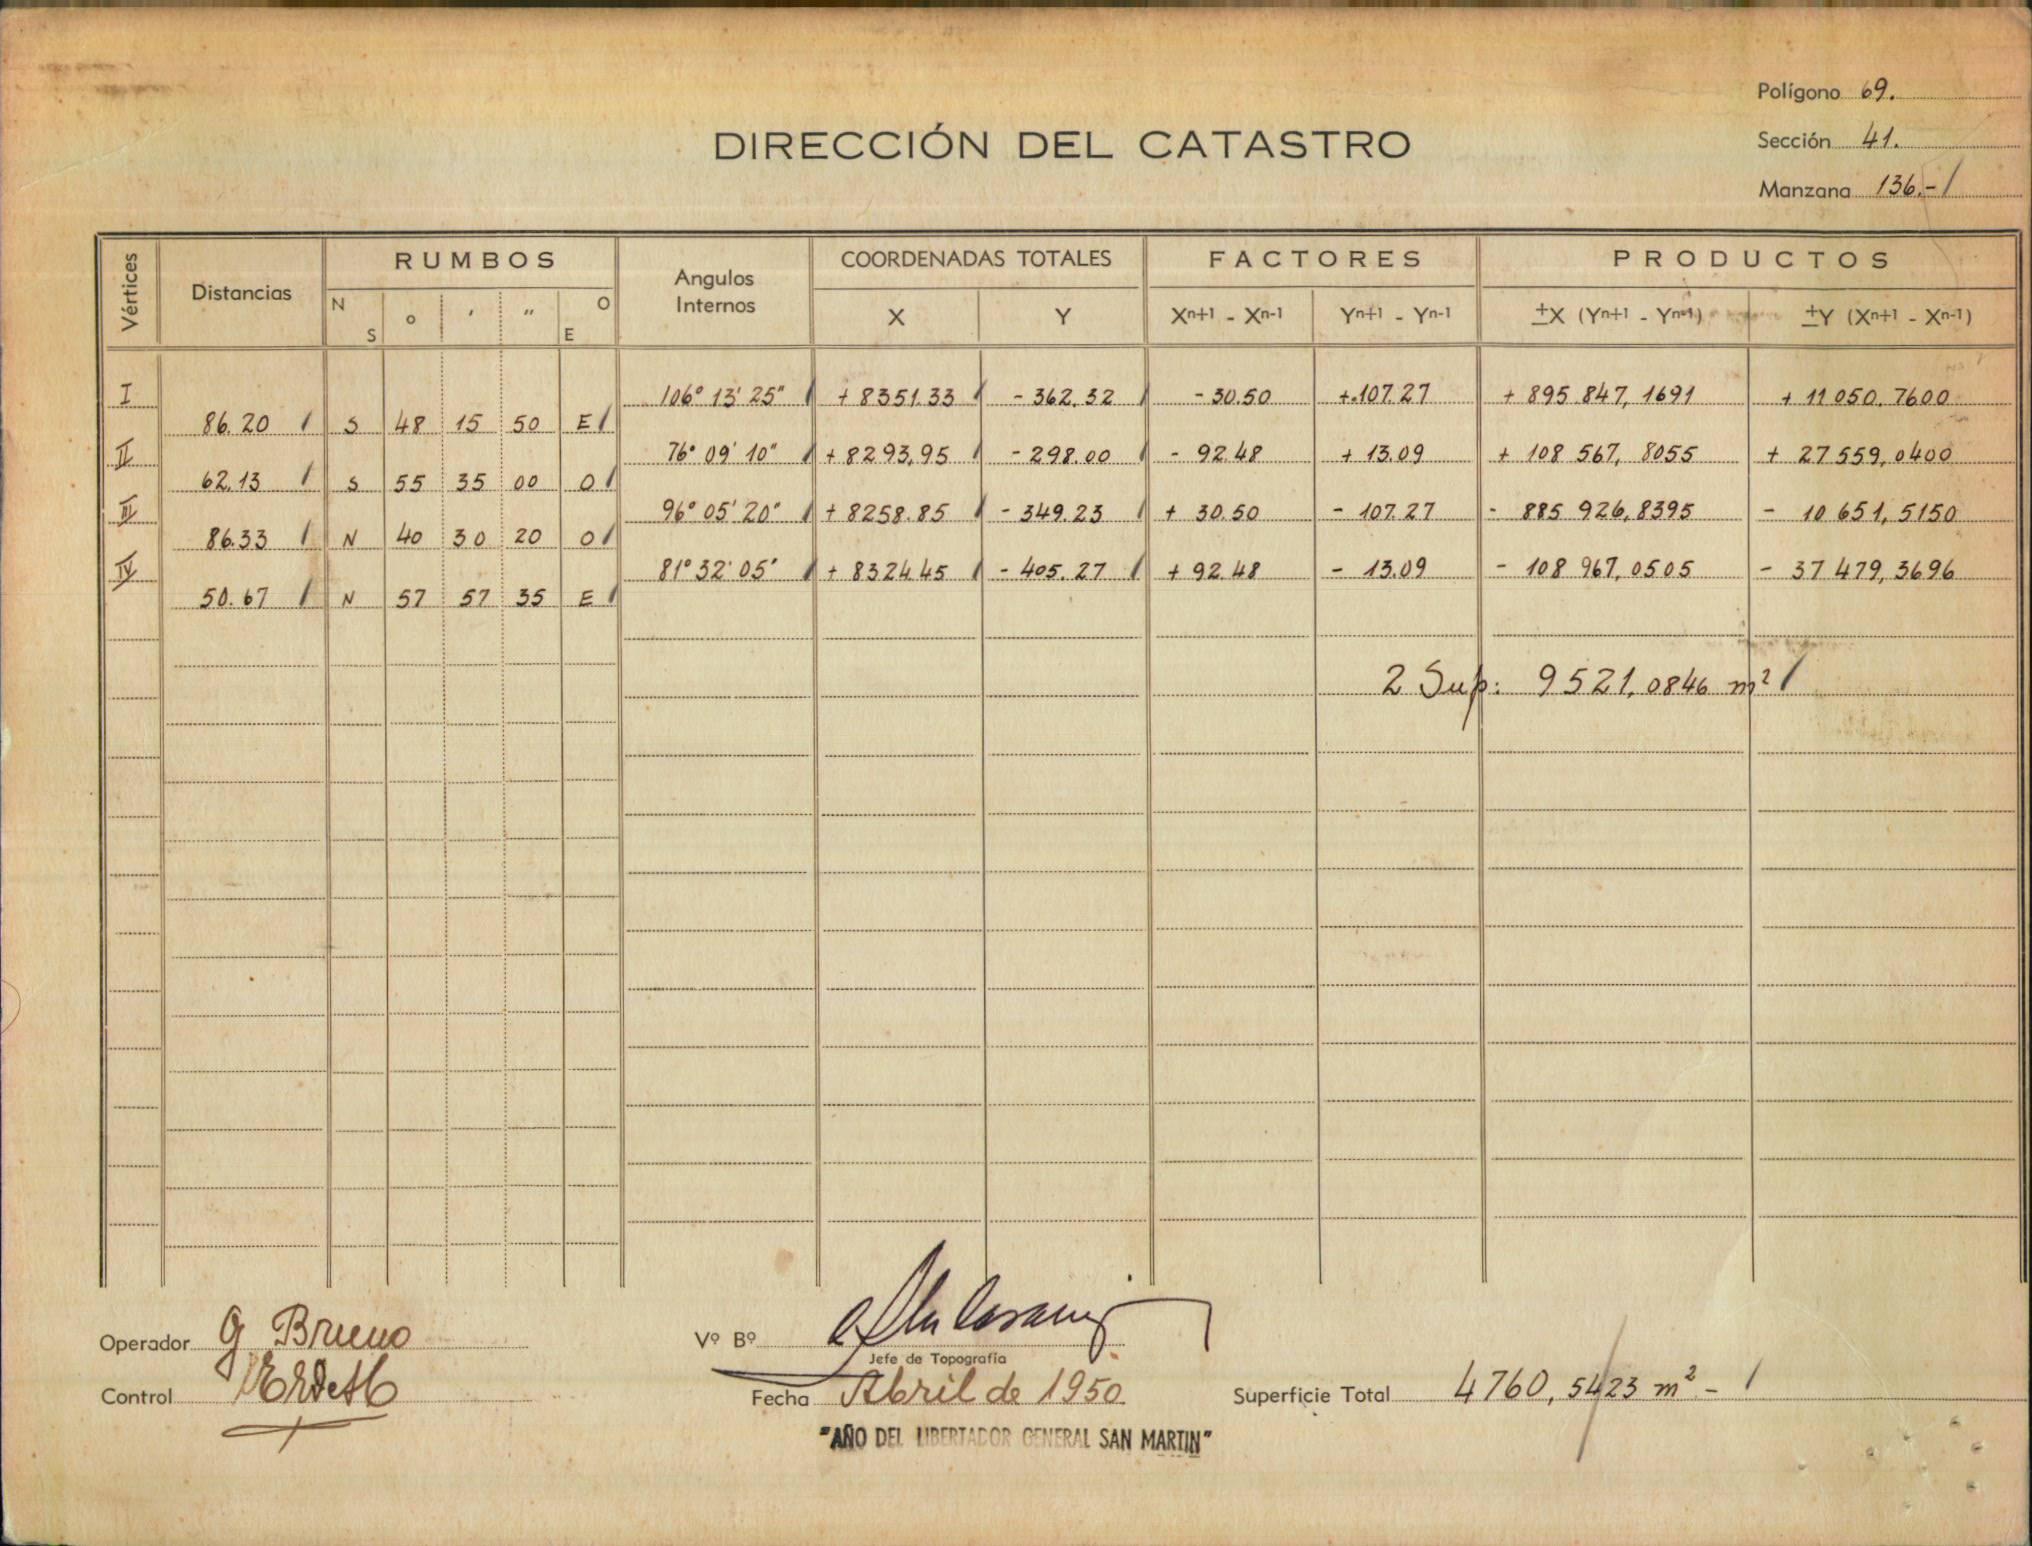 Polígono 69.
DIRECCIÓN DEL CATASTRO
Sección 41.
Manzana 136.-
Vértices Distancias RUMBOS Angulos Internos COORDENADAS TOTALES FACTORES PRODUCTOS
N S ° ' " O E X Y Xn+1 - Xn-1 Yn+1 - Yn-1 ±X (Yn+1 - Yn-1) ±Y (Xn+1 - Xn-1)
I 106° 13' 25" + 8351.33 - 362.32 - 30.50 +.107.27 + 895 847, 1691 + 11 050.7600
86.20 S 48 15 50 E
II 76° 09' 10" + 8293,95 - 298.00 - 92.48 + 13.09 + 108 567, 8055 + 27 559,0400
62.13 S 55 35 00 O
III 96° 05' 20" + 8258.85 - 349.23 + 30.50 - 107.27 - 885 926,8395 - 10 651,5150
86.33 N 40 30 20 O
IV 81° 32' 05" + 8324.45 - 405.27 + 92.48 - 13.09 - 108 967,0505 - 37 479,3696
50.67 N 57 57 35 E
2 Sup: 9521,0846 m²
Operador G Bruno
Vº Bº
Jefe de Topografía
Control
Fecha Abril de 1950
Superficie Total 4760,5423 m² -
"AÑO DEL LIBERTADOR GENERAL SAN MARTIN"